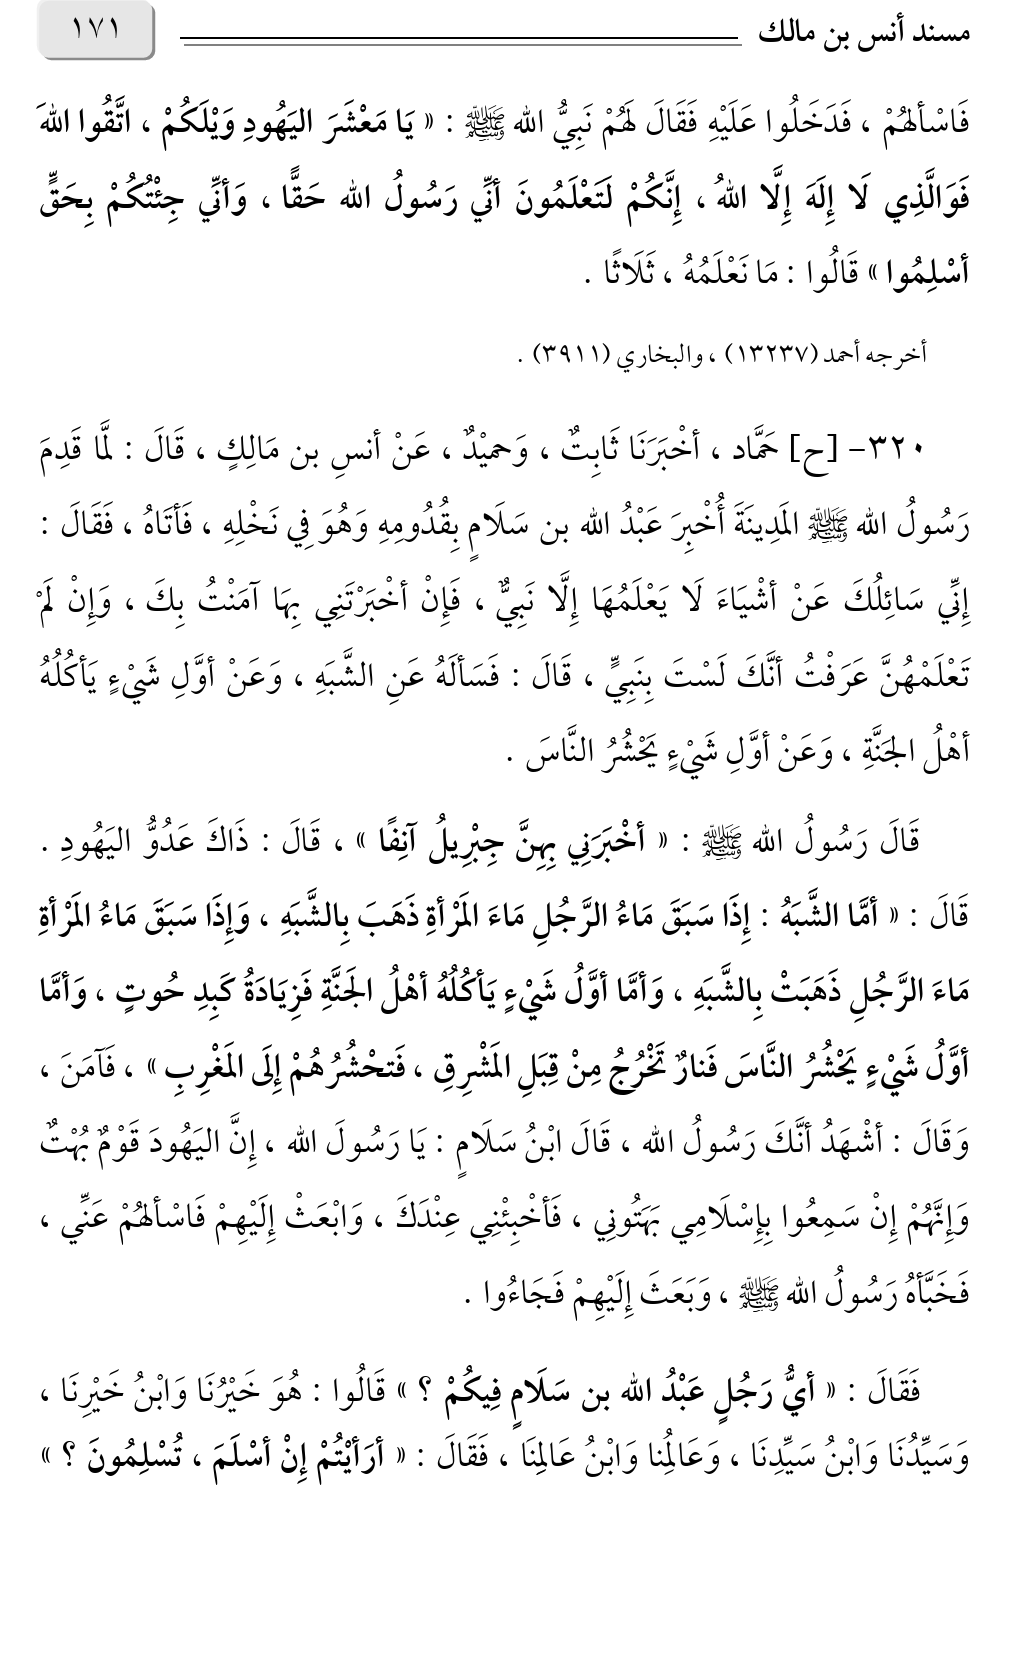 مسند أنس بن مالك ١٧١
فَاسْألهُمْ ، فَدَخَلُوا عَلَيْهِ فَقَالَ لَهُمْ نَبِيُّ الله ﷺ : « يَا مَعْشَرَ اليَهُودِ وَيْلَكُمْ ، اتَّقُوا اللهَ
فَوَالَّذِي لَا إِلَهَ إِلَّا اللهُ ، إِنَّكُمْ لَتَعْلَمُونَ أنِّي رَسُولُ الله حَقًّا ، وَأنِّي جِئْتُكُمْ بِحَقٍّ
أسْلِمُوا » قَالُوا : مَا نَعْلَمُهُ ، ثَلَاثًا .
أخرجه أحمد (١٣٢٣٧) ، والبخاري (٣٩١١) .
٣٢٠- [ح] حَمَّاد ، أخْبَرَنَا ثَابِتٌ ، وَحميْدٌ ، عَنْ أنسِ بن مَالِكٍ ، قَالَ : لَمَّا قَدِمَ
رَسُولُ الله ﷺ المَدِينَةَ أُخْبِرَ عَبْدُ الله بن سَلَامٍ بِقُدُومِهِ وَهُوَ فِي نَخْلِهِ ، فَأتَاهُ ، فَقَالَ :
إِنِّي سَائِلُكَ عَنْ أشْيَاءَ لَا يَعْلَمُهَا إِلَّا نَبِيٌّ ، فَإِنْ أخْبَرْتَنِي بِهَا آمَنْتُ بِكَ ، وَإِنْ لَمْ
تَعْلَمْهُنَّ عَرَفْتُ أنَّكَ لَسْتَ بِنَبِيٍّ ، قَالَ : فَسَألَهُ عَنِ الشَّبَهِ ، وَعَنْ أوَّلِ شَيْءٍ يَأكُلُهُ
أهْلُ الجَنَّةِ ، وَعَنْ أوَّلِ شَيْءٍ يَحْشُرُ النَّاسَ .
قَالَ رَسُولُ الله ﷺ : « أخْبَرَنِي بِهِنَّ جِبْرِيلُ آنِفًا » ، قَالَ : ذَاكَ عَدُوُّ اليَهُودِ .
قَالَ : « أمَّا الشَّبَهُ : إِذَا سَبَقَ مَاءُ الرَّجُلِ مَاءَ المَرْأةِ ذَهَبَ بِالشَّبَهِ ، وَإِذَا سَبَقَ مَاءُ المَرْأةِ
مَاءَ الرَّجُلِ ذَهَبَتْ بِالشَّبَهِ ، وَأمَّا أوَّلُ شَيْءٍ يَأكُلُهُ أهْلُ الجَنَّةِ فَزِيَادَةُ كَبِدِ حُوتٍ ، وَأمَّا
أوَّلُ شَيْءٍ يَحْشُرُ النَّاسَ فَنارٌ تَخْرُجُ مِنْ قِبَلِ المَشْرِقِ ، فَتحْشُرُهُمْ إِلَى المَغْرِبِ » ، فَآمَنَ ،
وَقَالَ : أشْهَدُ أنَّكَ رَسُولُ الله ، قَالَ ابْنُ سَلَامٍ : يَا رَسُولَ الله ، إِنَّ اليَهُودَ قَوْمٌ بُهْتٌ
وَإِنَّهُمْ إِنْ سَمِعُوا بِإِسْلَامِي بَهَتُونِي ، فَأخْبِئْنِي عِنْدَكَ ، وَابْعَثْ إِلَيْهِمْ فَاسْألهُمْ عَنِّي ،
فَخَبَّأهُ رَسُولُ الله ﷺ ، وَبَعَثَ إِلَيْهِمْ فَجَاءُوا .
فَقَالَ : « أيُّ رَجُلٍ عَبْدُ الله بن سَلَامٍ فِيكُمْ ؟ » قَالُوا : هُوَ خَيْرُنَا وَابْنُ خَيْرِنَا ،
وَسَيِّدُنَا وَابْنُ سَيِّدِنَا ، وَعَالِمُنا وَابْنُ عَالِمِنَا ، فَقَالَ : « أرَأيْتُمْ إِنْ أسْلَمَ ، تُسْلِمُونَ ؟ »